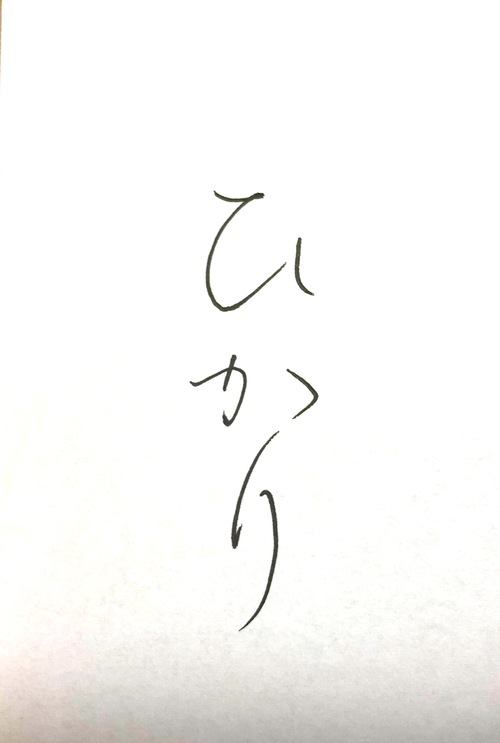 ひかり